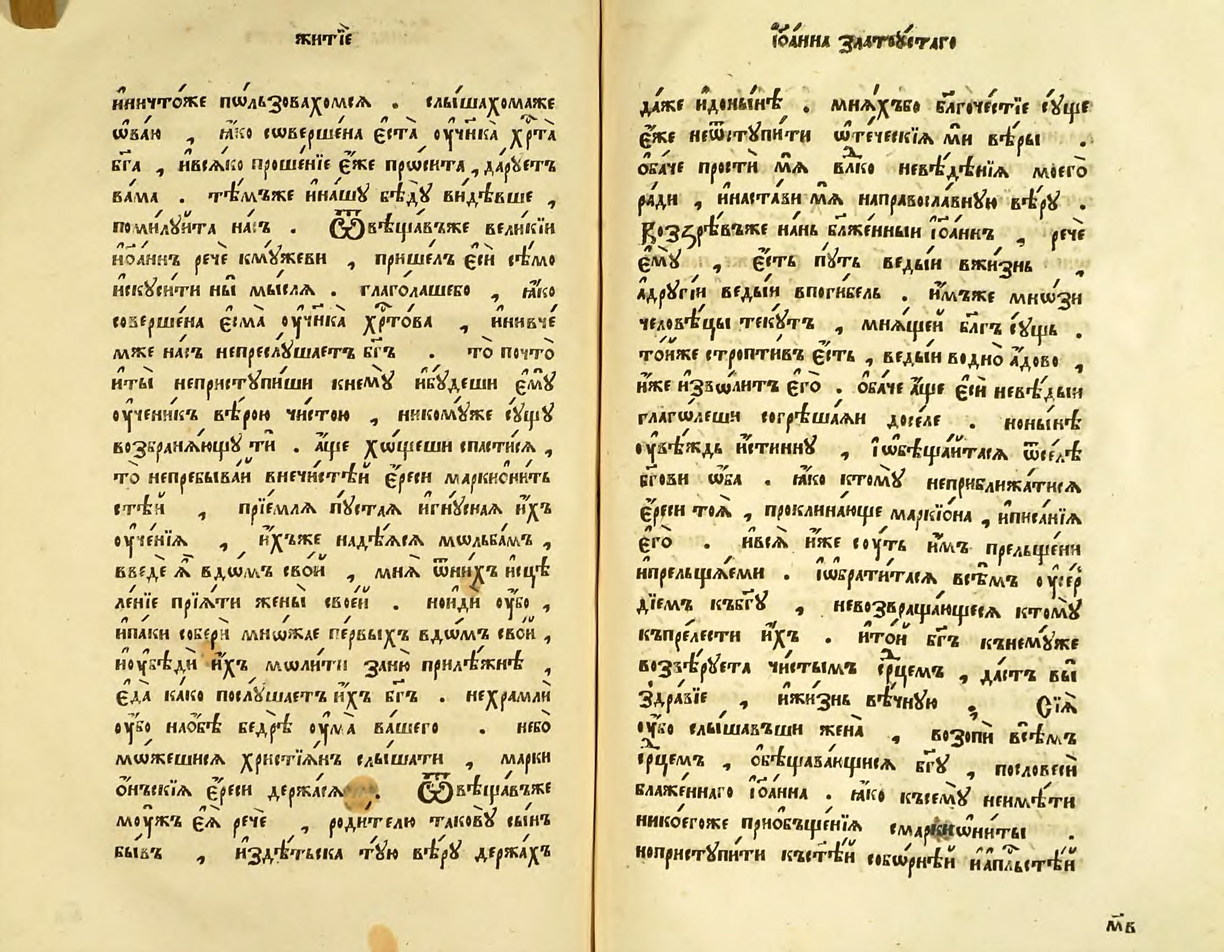 житїе
иничто́же пѡльзовахомсѧ . слы́шахомаже
ѡ҆ва́ю , ꙗ҆́ко сѡверше́на є҆ста̀ ᲂу҆чн҃ка̀ хрⷭ҇та̀
бг҃а , ивсѧ́ко проше́нїе є҆́же прѡ́сита , да́руетъ
ва́ма . тѣ́мъже ина́шꙋ бѣдꙋ̀ ви́дѣвше ,
поми́лꙋйта на́съ . Ѿвѣща́въже вели́кїи
иѡа́ннъ речѐ кмꙋ́жеви , прише́лъ є҆сѝ сѣ́мо
искꙋси́ти ны̀ мы́слѧ . глаго́лашебо , ꙗ҆́ко
соверше́на є҆сма̀ ᲂу҆чн҃ка̀ хрⷭ҇то́ва , инивче́
мже на́съ непреслꙋ́шаетъ бг҃ъ . то̀ почто̀
иты̀ непристꙋ́пиши кнемꙋ̀ ибꙋ́деши є҆мꙋ̀
ᲂу҆чени́къ вѣ́рою чи́стою , никомꙋ́же сꙋ́щꙋ
возбранѧ́ющꙋ тѝ . а҆́ще хѡ́щеши спасти́сѧ ,
то̀ непребыва́й внечи́стѣй є҆́реси маркио́нить
стѣ́й , прїе́млѧ пꙋста́ѧ игнꙋ́снаѧ и҆́хъ
ᲂу҆че́нїѧ , и҆́хъже надѣ́ѧсѧ мѡльба́мъ ,
введѐ ѧ҆̀ вдо́мъ сво́й , мнѧ̀ ѿни́хъ исцѣ
ле́нїе прїѧ́ти жены̀ свое́й . нои́ди ᲂу҆́бо ,
ипа́ки соберѝ мнѡ́жае пе́рвыхъ вдо́мъ сво́й ,
иᲂу҆бѣдѝ и҆́хъ мѡли́ти за́ню прилѣ́жнѣ ,
є҆да̀ ка́ко послꙋ́шаетъ и҆́хъ бг҃ъ . нехрамлѝ
ᲂу҆́бо нао́бѣ бедрѣ̀ ᲂу҆ма̀ ва́шего . небо̀
мѡ́жешисѧ христїѧ́нъ слы́шати , марки
ѻ́нъскїѧ є҆́реси держа́сѧ . Ѿвѣща́въже
мꙋ́жъ є҆ѧ̀ речѐ , роди́телю такова̀ сы́нъ
бы́въ , и҆здѣ́тьска тꙋ́ю вѣ́рꙋ держа́хъ
і҆ѡа́нна златоꙋ́стаго
да́же идоны́нѣ . мнѧ́хъбо бл҃гоче́стїе сꙋ́ще
є҆́же неѿстꙋпи́ти ѡ҆те́ческїѧ мѝ вѣ́ры .
ѻ҆ба́че простѝ мѧ̀ влⷣко невѣ́дѣнїѧ моего̀
ра́ди , инаста́ви мѧ̀ направосла́внꙋю вѣ́рꙋ .
Возрѣ́въже на́нь бл҃же́нныи і҆ѡа́ннъ , речѐ
є҆мꙋ̀ , є҆́сть пꙋ́ть веды́и вжи́знь ,
а҆дрꙋгі́и веды́и впоги́бель . и҆́мъже мнѡ́зи
человѣ́цы текꙋ́тъ , мнѧ́щей бл҃гъ сꙋ́щь .
то́йже стропти́въ є҆́сть , веды́и во дно̀ а҆́дово ,
и҆́же и҆звѡ́литъ є҆го̀ . ѻ҆ба́че а҆́ще є҆сѝ невѣ́дыи
глаго́леши согрѣша́ѧи до́селе . ноны́нѣ
ᲂу҆вѣ́ждь и҆́стиннꙋ , і҆ѡбѣща́йтасѧ ѿсе́лѣ
бг҃ови ѡ҆́ба . ꙗ҆́ко ктомꙋ̀ неприближа́тисѧ
є҆́реси то́ѧ , проклина́юще маркїо́на , иписа́нїѧ
є҆го̀ . ивсѧ̀ и҆́же соуть и҆́мъ прельще́ни
ипрельща́еми . і҆ѡбрати́тасѧ всѣ́мъ ᲂу҆се́р
дїемъ къбг҃ꙋ , невозвраща́ющесѧ ктомꙋ̀
къпре́лести и҆́хъ . ито́й бг҃ъ кънемꙋ́же
возвѣ́рꙋета чи́стымъ срⷣцемъ , да́стъ вы̀
здра́вїе , ижи́знь вѣ́чнꙋю . Сїѧ̀
ᲂу҆́бо слы́шавъши жена̀ , возопѝ всѣ́мъ
срⷣцемъ , ѻ҆бѣщава́ющисѧ бг҃ꙋ , пословесѝ
блаже́ннаго і҆ѡа́нна . ꙗ҆́ко късемꙋ̀ неимѣ́ти
никоегоже приѻбще́нїѧ смаркиѡни́ты .
нопристꙋпи́ти къст҃ѣ́й собѡ́рнѣй иа҆пⷭ҇льстѣ́й
м҃в